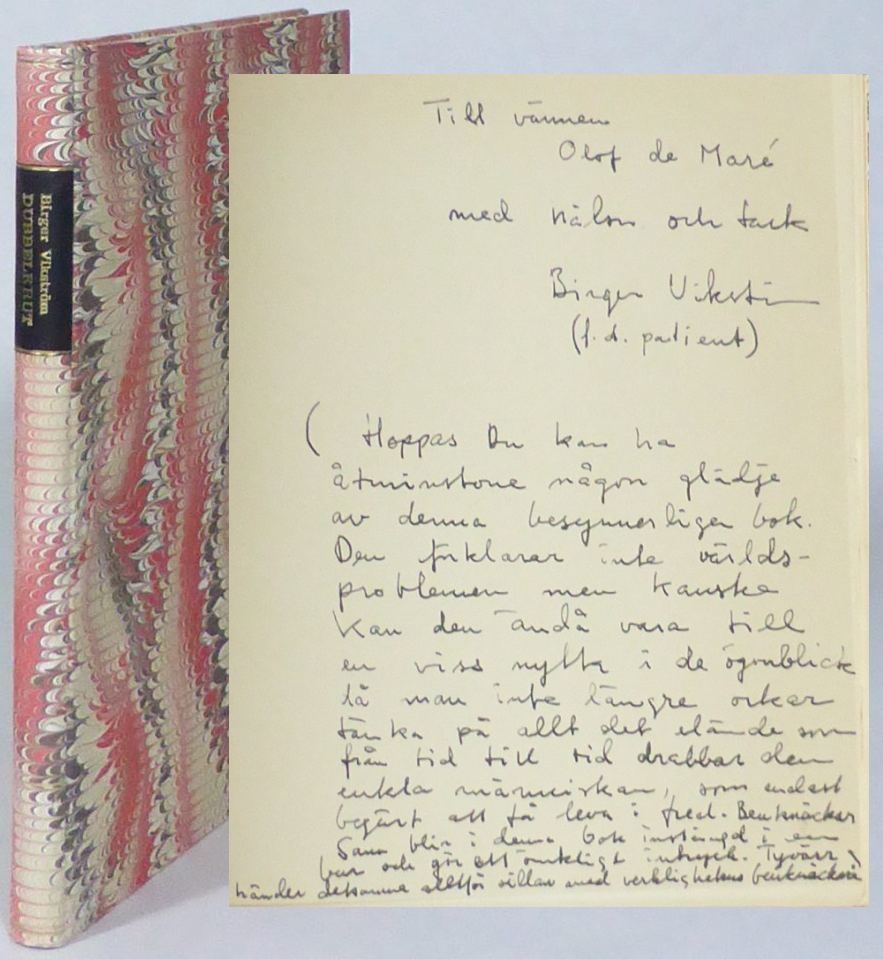 Birger Vikström
DUBBELKRUT
Till vännen
Olof de Maré
med hälsn. och tack
Birger Vikström
(f.d. patient)
( Hoppas Du kan ha
åtminstone någon glädje
av denna besynnerliga bok.
Den förklarar inte världs-
problemen men kanske
kan den ändå vara till
en viss nytta i de ögonblick
då man inte längre orkar
tänka på allt det elände som
från tid till tid drabbar den
enkla människan, som endast
begärt att få leva i fred. Benknäckar
Sam blir i denna bok instängd i en
bur och gör ett ömkligt intryck. Tyvärr
händer detsamma alltför sällan med verklighetens benknäckare)